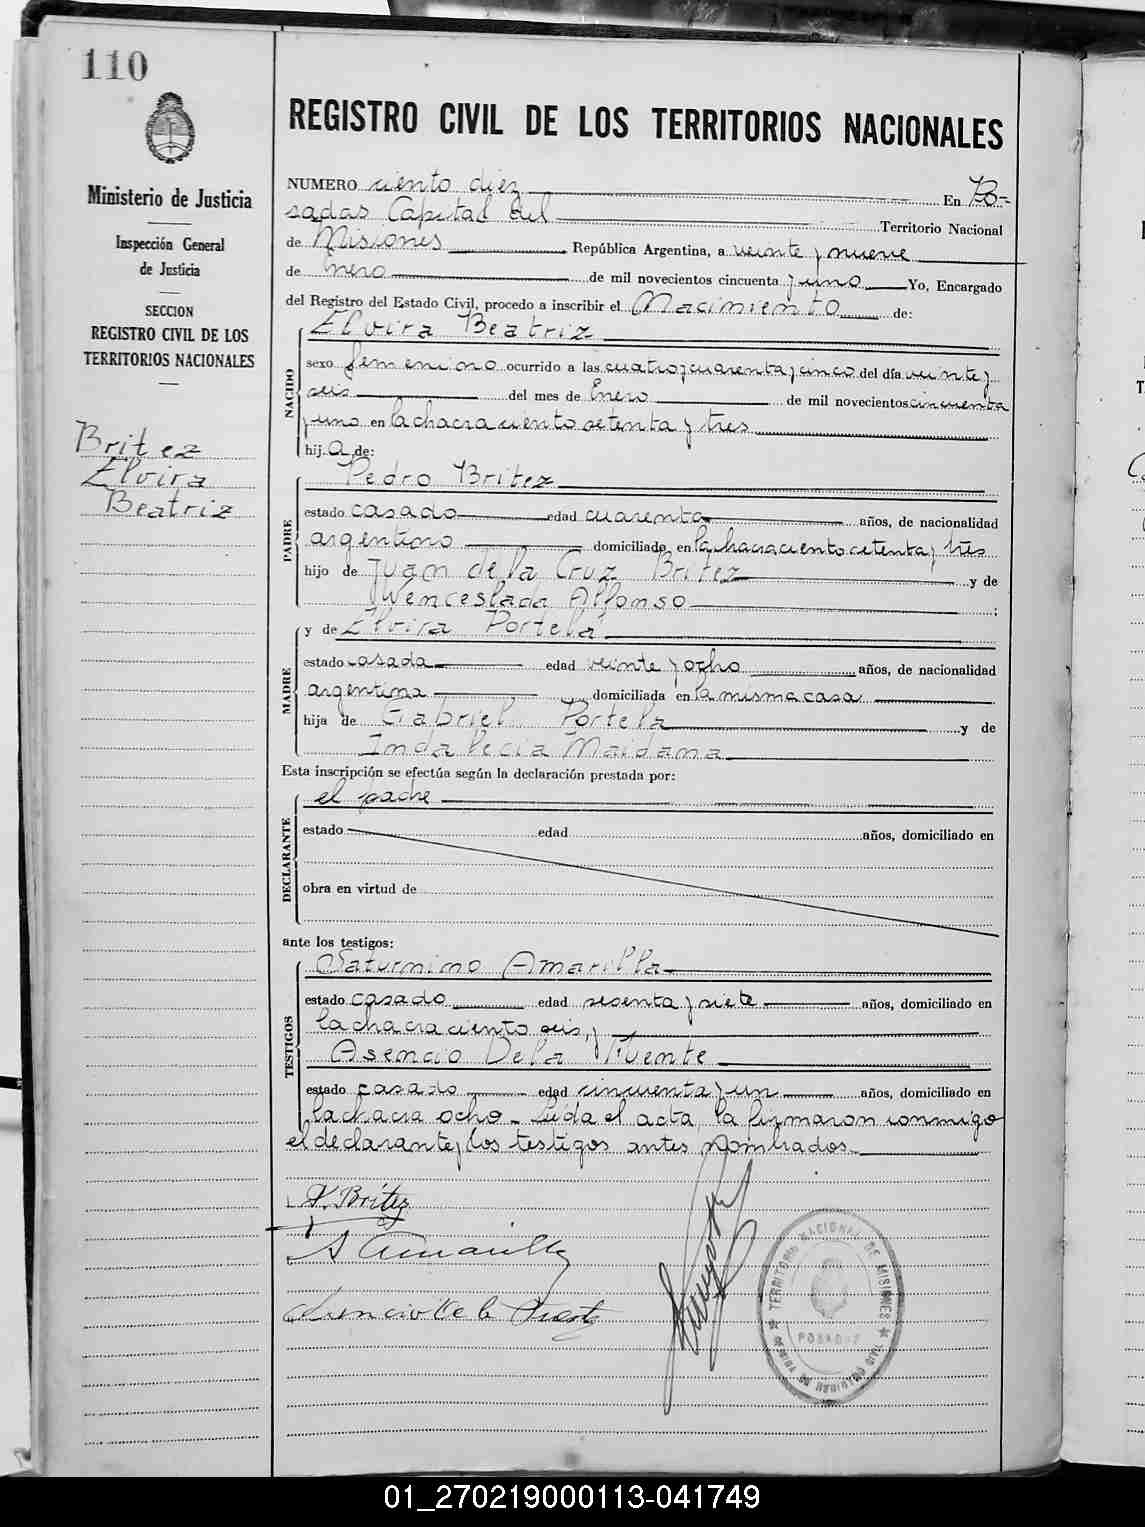 110
Ministerio de Justicia
Inspección General
de Justicia
SECCION
REGISTRO CIVIL DE LOS
TERRITORIOS NACIONALES
Britez
Elvira
Beatriz
REGISTRO CIVIL DE LOS TERRITORIOS NACIONALES
NUMERO ciento diez En Po-
sadas Capital del Territorio Nacional
de Misiones República Argentina, a veinte y nueve
de Enero de mil novecientos cincuenta y uno Yo, Encargado
del Registro del Estado Civil, procedo a inscribir el Nacimiento de:
NACIDO
Elvira Beatriz
sexo femenino ocurrido a las cuatro y cuarenta y cinco del día veinte y
seis del mes de Enero de mil novecientos cincuenta
y uno en la chacra ciento setenta y tres
hij a de:
PADRE
Pedro Britez
estado casado edad cuarenta años, de nacionalidad
argentino domiciliado en la chacra ciento setenta y tres
hijo de Juan de la Cruz Britez y de
Wenceslada Alfonso ;
MADRE
y de Elvira Portela
estado casada edad veinte y ocho años, de nacionalidad
argentina domiciliada en la misma casa
hija de Gabriel Portela y de
Indalecia Maidana
Esta inscripción se efectúa según la declaración prestada por:
DECLARANTE
el padre
estado edad años, domiciliado en
obra en virtud de
ante los testigos:
TESTIGOS
Saturnino Amarilla
estado casado edad sesenta y siete años, domiciliado en
la chacra ciento seis, y
Asencio De la Fuente
estado casado edad cincuenta y un años, domiciliado en
la chacra ocho - Leida el acta, la firmaron conmigo
el declarante y los testigos antes nombrados.
P. Britez
S Amarilla
Asencio De la Fuente
TERRITORIO NACIONAL DE MISIONES
POSADAS
01_270219000113-041749